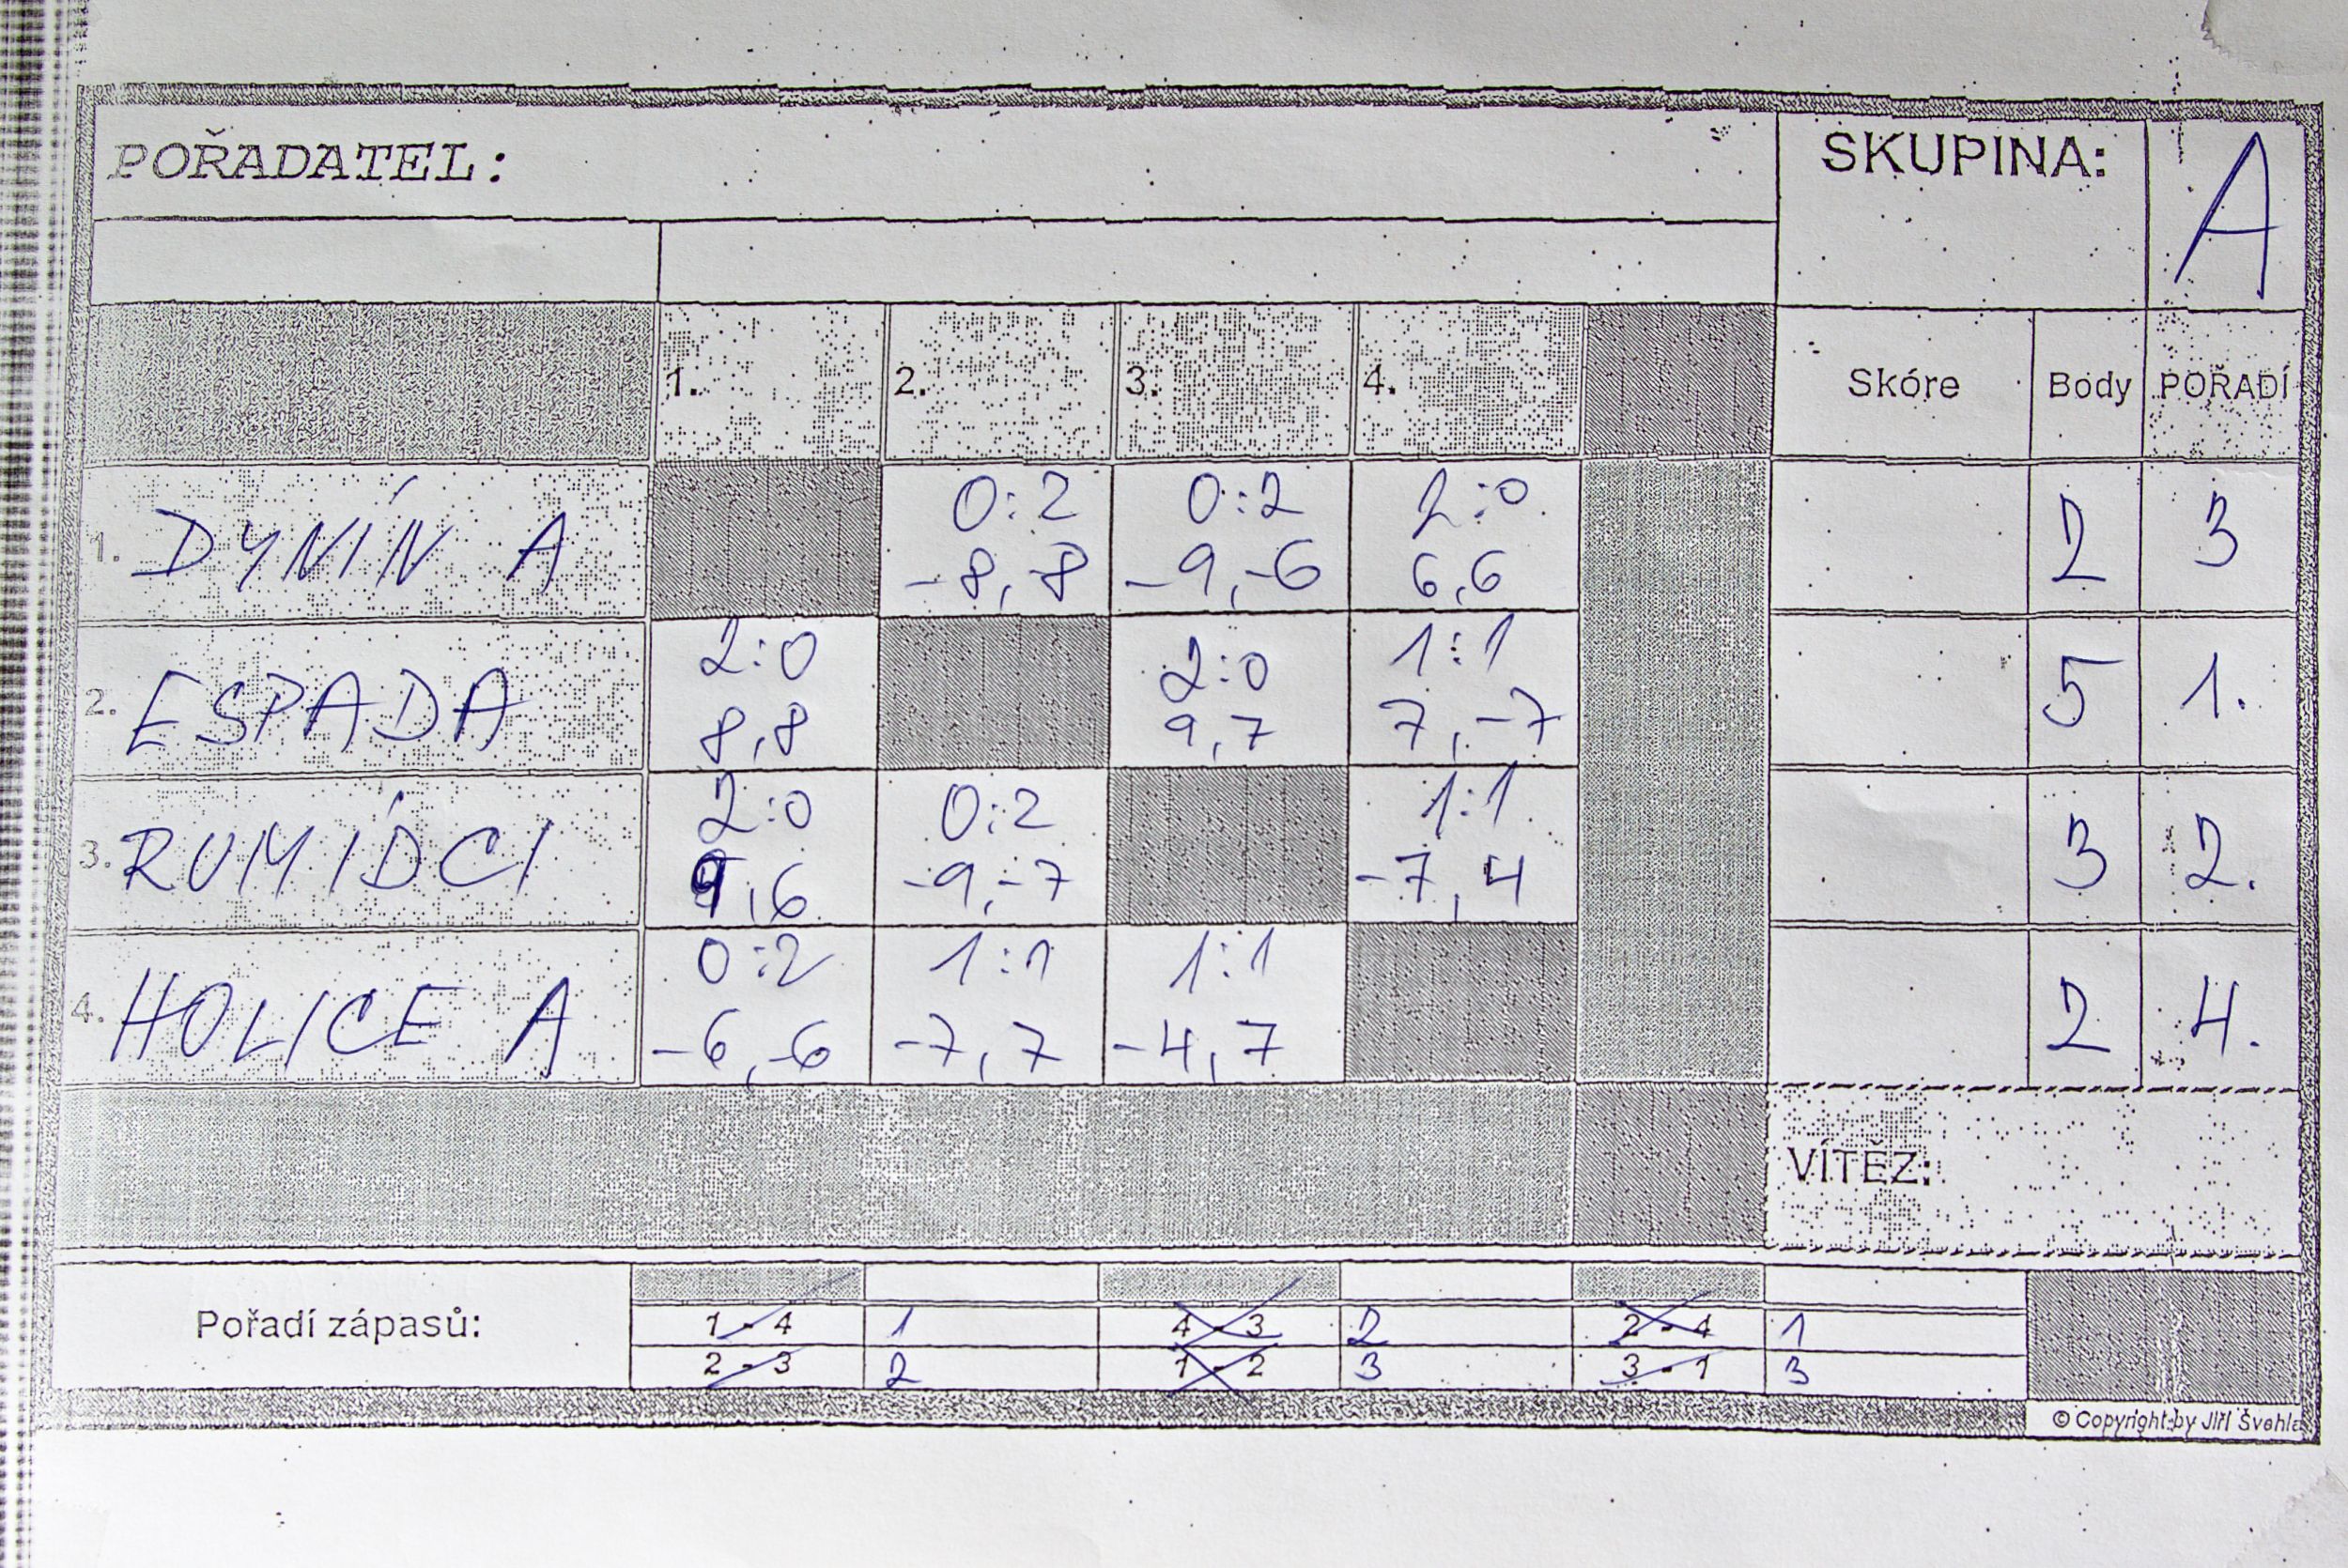 POŘADATEL:
SKUPINA:
A
1. 2. 3. 4. Skóre Body POŘADÍ
0:2 0:2 2:0
1. DYNÍN A 2 3
-8,-8 -9,-6 6,6
2:0 2:0 1:1
2. ESPADA 5 1.
8,8 9,7 7,-7
2:0 0:2 1:1
3. RUMÍDCI 3 2.
9,6 -9,-7 -7,4
0:2 1:1 1:1
4. HOLICE A 2 4.
-6,-6 -7,7 -4,7
VÍTĚZ:
Pořadí zápasů:
1-4 1 4-3 2 2-4 1
2-3 2 1-2 3 3-1 3
© Copyright by Jiří Švehla